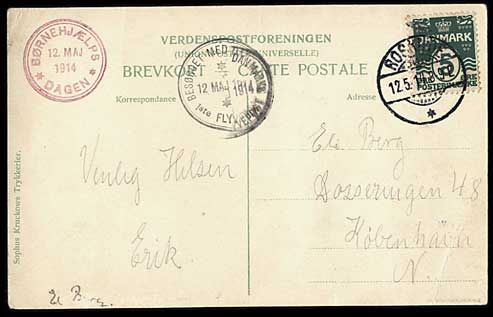 VERDENSPOSTFORENINGEN
(UNION POSTALE UNIVERSELLE)
BREVKORT — CARTE POSTALE
Korrespondance
Adresse
BØRNEHJÆLPS
12. MAJ
1914
DAGEN
BESØRGET MED DANMARKS
12 MAJ 1914
1ste FLYVEPOST
ROSKILDE
12.5.14
DANMARK
5
ØRE
POSTFRIMÆRKE
Venlig Hilsen
Erik
Els Berg
Dosseringen 48
København
N.
Sophus Kruckows Trykkerier.